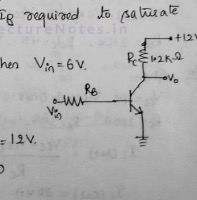 IB required to saturate
LectureNotes.in
hen Vin = 6V.
+12V
RC
1.2KΩ
Vo
RB
Vin
= 12V.